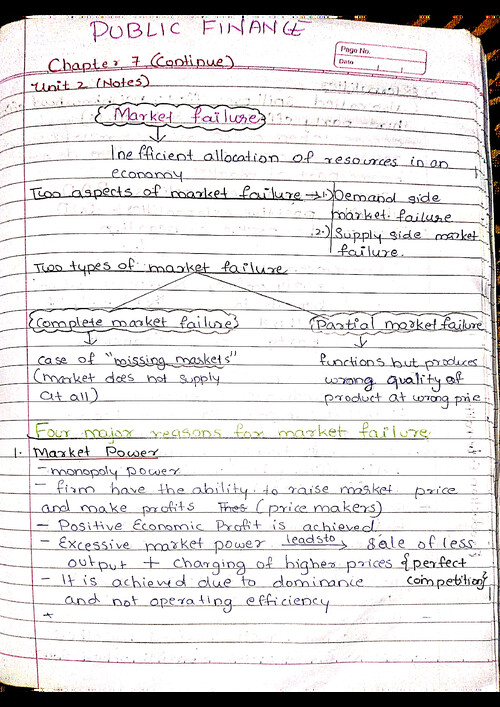 PUBLIC FINANCE
Page No.
Date
Chapter 7 (Continue)
Unit 2 (Notes)
Market failure
Inefficient allocation of resources in an
economy
Two aspects of market failure → 1.) Demand side
market failure
2.) Supply side market
failure.
Two types of market failure
Complete market failure
Partial market failure
case of "missing markets"
(market does not supply
at all)
functions but produces
wrong quality of
product at wrong price
Four major reasons for market failure
1. Market Power
- monopoly power
- firm have the ability to raise market price
and make profits (price makers)
- Positive Economic Profit is achieved.
- Excessive market power leads to → Sale of less
output + charging of higher prices {perfect
competition}
- It is achieved due to dominance
and not operating efficiency